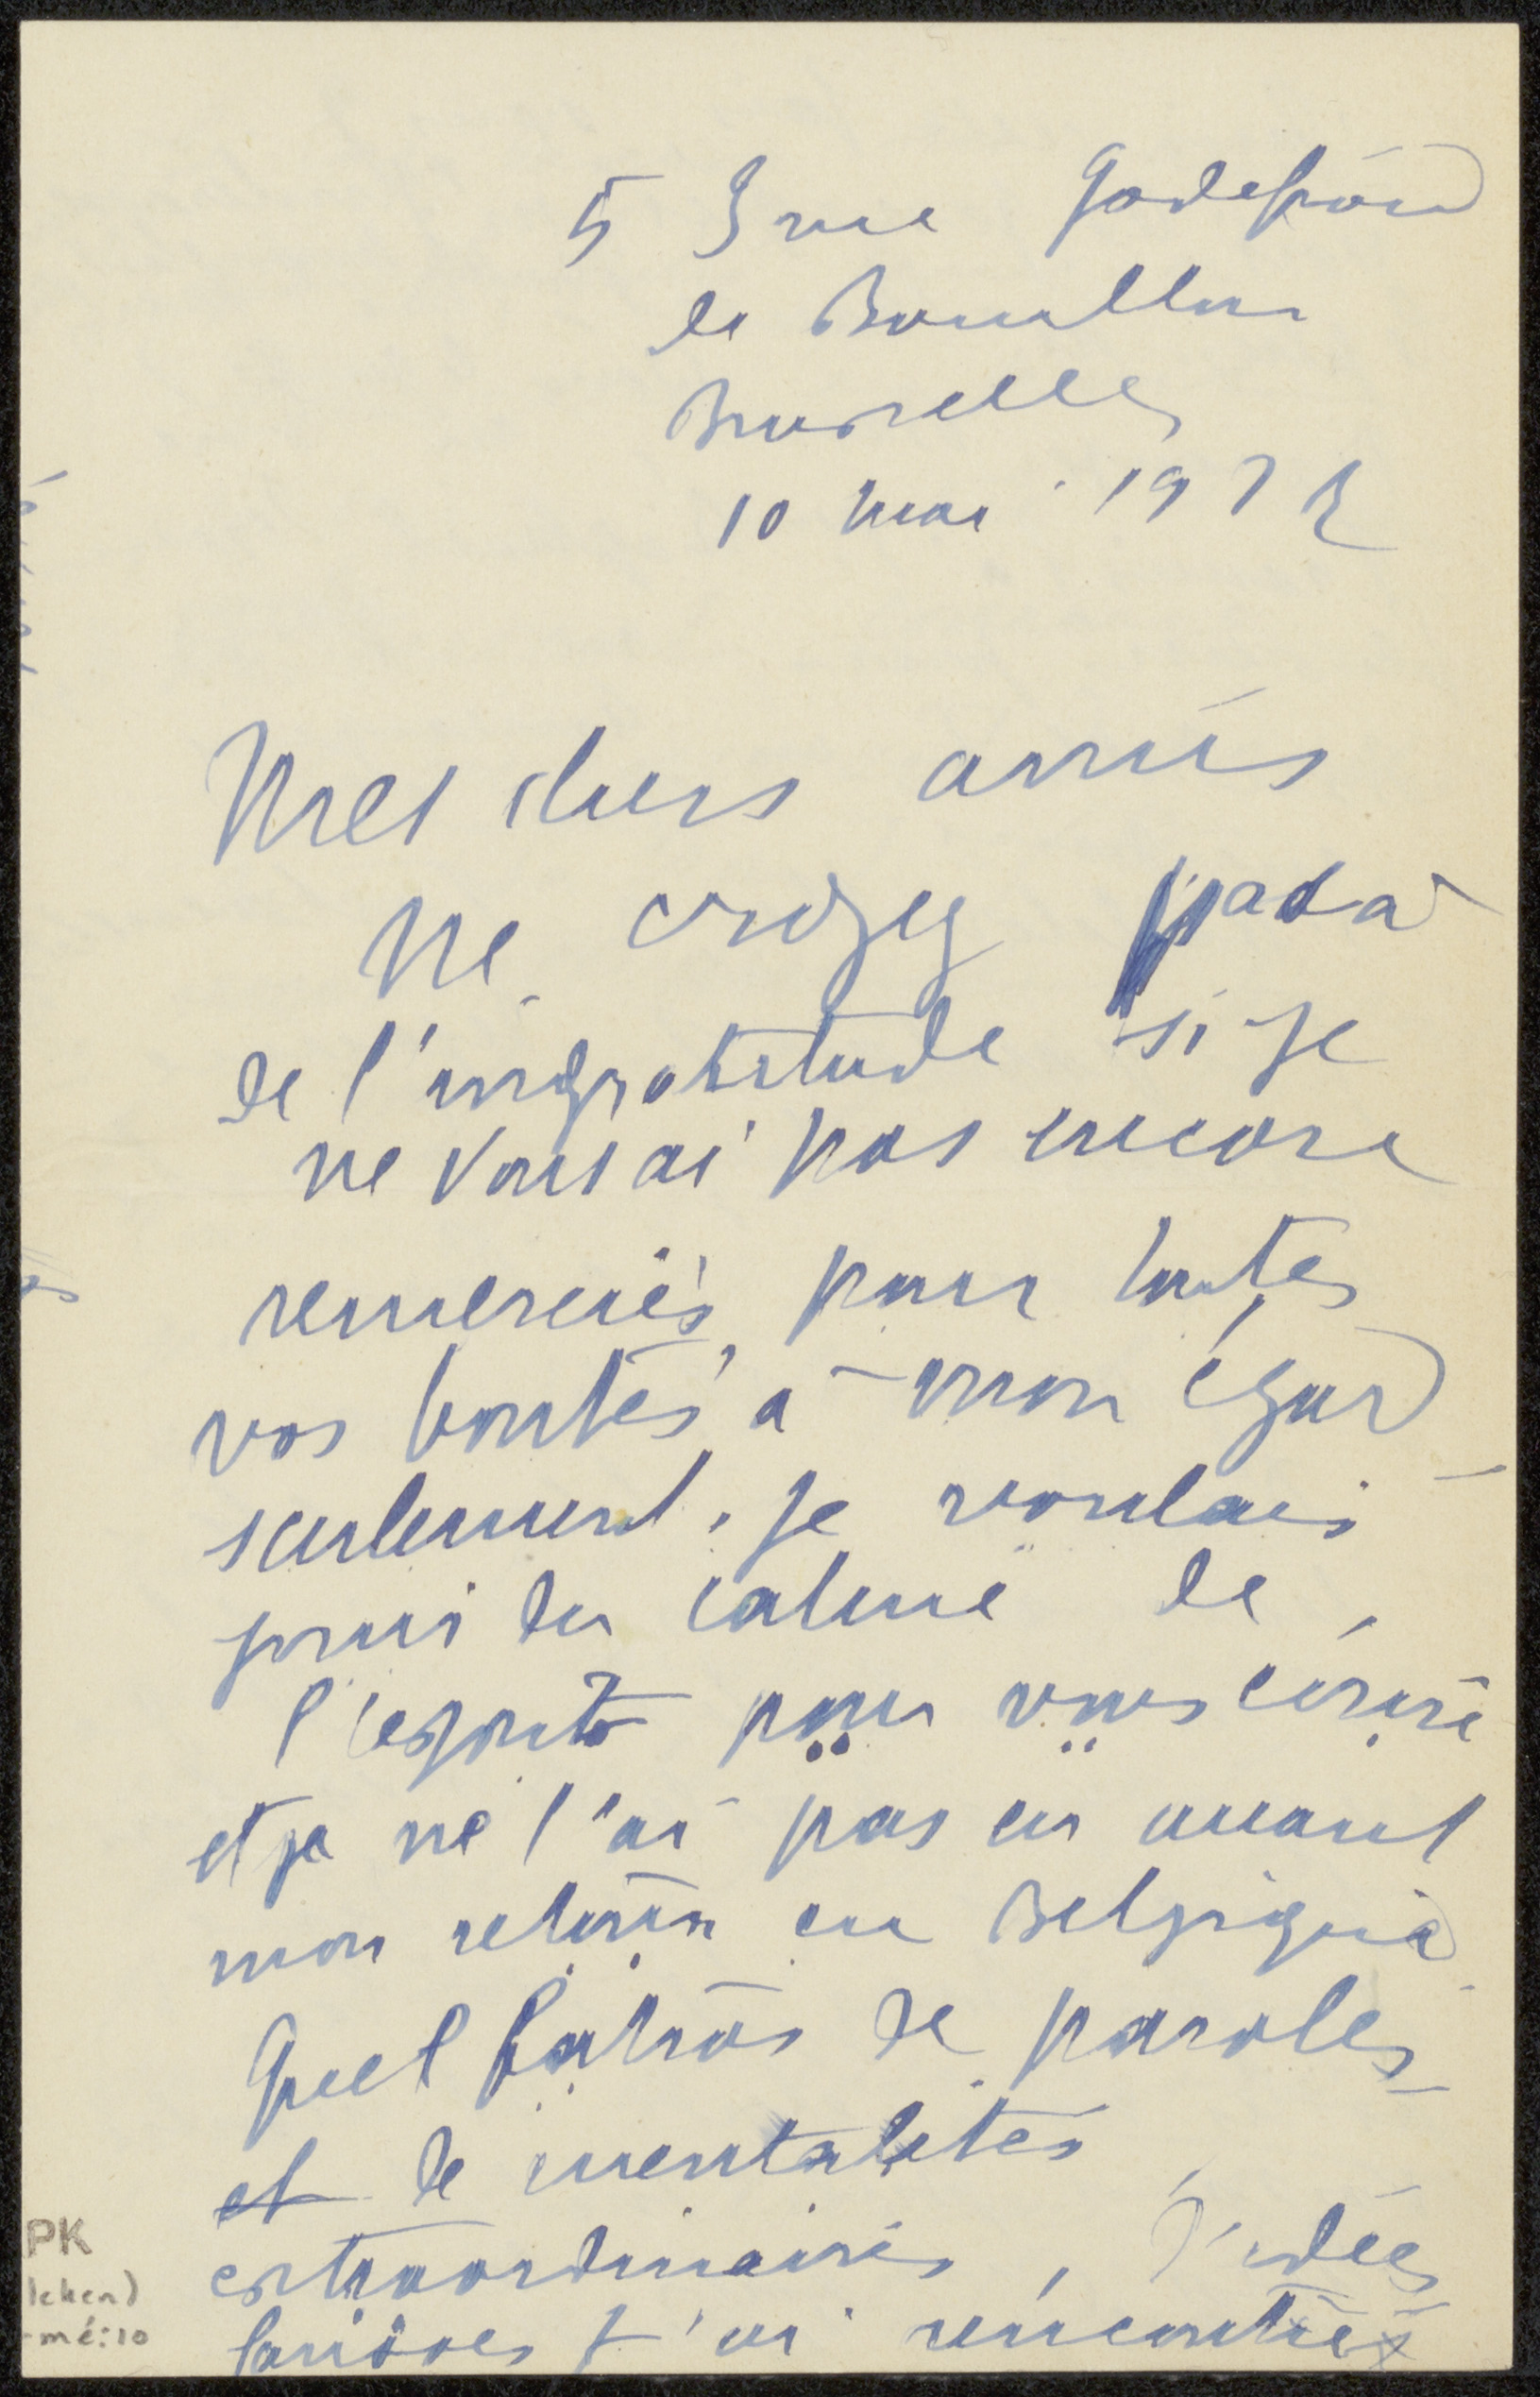 53 rue Godefroid
de Bouillon
Bruxelles
10 mai 1972
Mes chers amis
Ne croyez pas à
de l'ingratitude si je
ne vous ai pas encore
remerciés pour toutes
vos bontés à mon égard
seulement, je voulais
jouir du calme de
l'esprit pour vous écrire
et je ne l'ai pas eu avant
mon retour en Belgique
Quel fatras de paroles
et de mentalités
extraordinaires, d'idées
j'ai rencontrés
PK
leken)
-mé:10